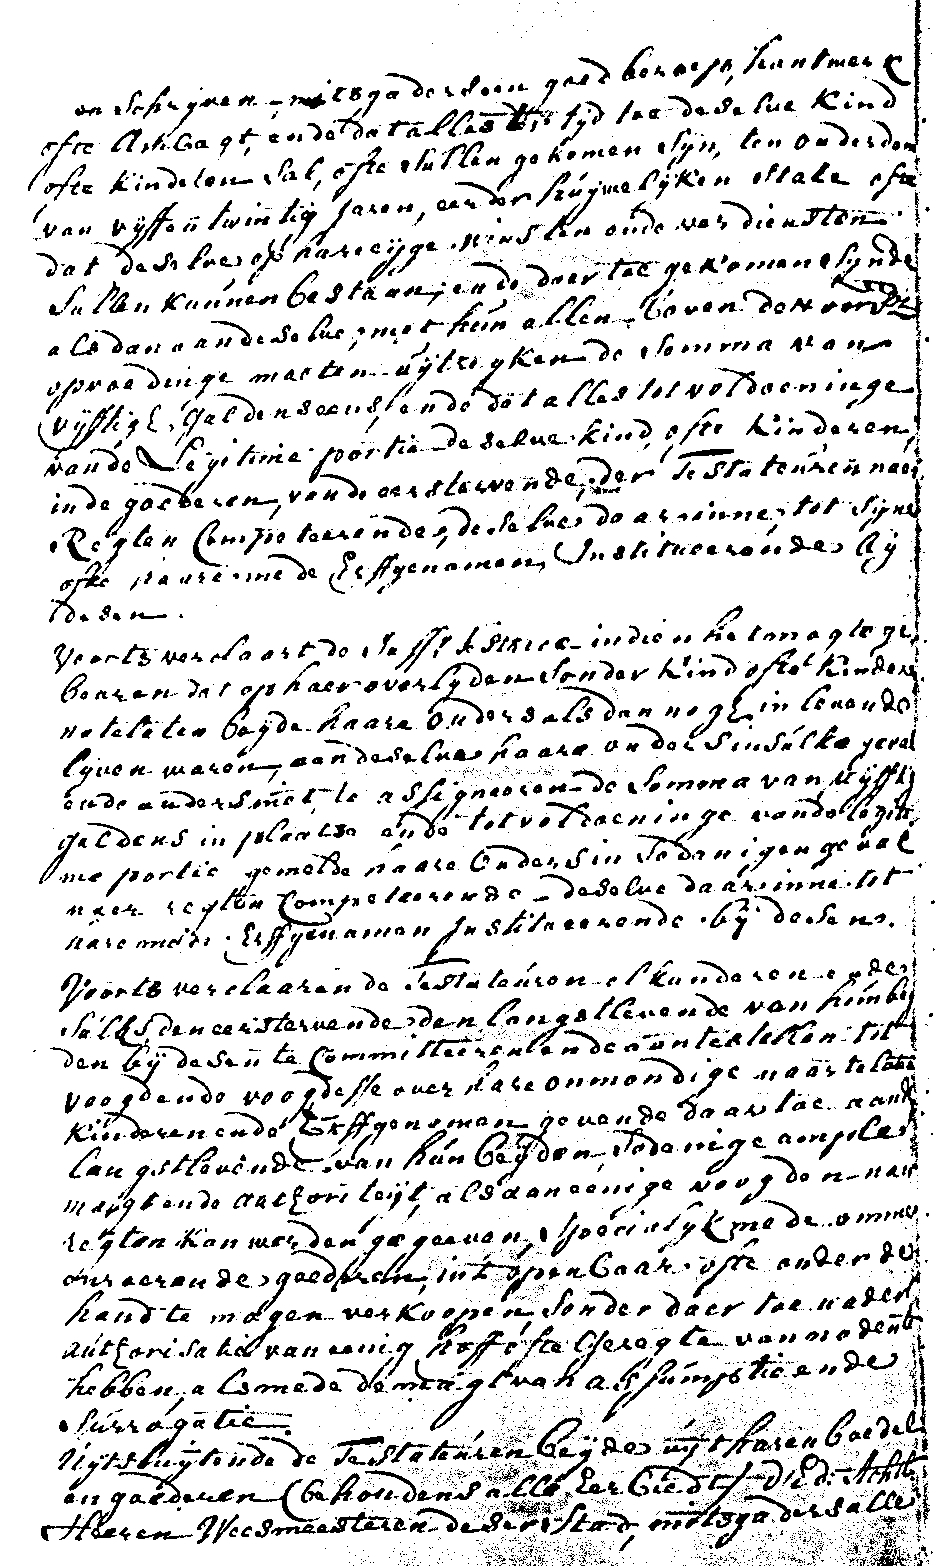 en schrijven, mitsgaders een goed beroep, hantwerk
ofte Ambagt, ende dat alles tot, tyd toe deselve Kind
ofte Kinderen sal, ofte sullen gekomen syn, ten ouderdom
van vyffentwintig Jaren, eerder huywelyken state ofte
dat deselve op hare eyge winsten ende verdiensten
sullen kunnen bestaan, ende daer toe gekomen synde
als dan aan deselve, met hun allen boven de voorsz
opvoedinge moeten uytreyken de Somma van
vyfftigh Guldens eens, ende dat alles tot voldoeninge
van de Legitime portie deselve kind, ofte Kinderen,
in de goederen, van de eerstervende, der Testateuren naer
Regten Competeerende, deselve daer inne, tot syne
ofte haare mede Erffgenamen, Institueerende by
desen.
Voorts verclaart de Testatrice indien het mogte ge
beuren dat op haer overlyden sonder Kind ofte Kinders
na te laten beyde haare Ouders als dan nogh in levende
lyve waren, aan deselve haare ouders in sulke geval
ende anders niet, te assigneeren de Somma van vyfftig
guldens in plaatse ende tot voldoeninge van de legiti
me portie gemelde haare Ouders in sodanigen geval
naer regten Competeerende deselve daar inne tot
hare mede Erffgenamen Institueerende by desen.
Voorts verclaaren de Testateuren elkanderen ende
sulks de eerstervende den langstlevende van hun bey
den by desen te Committeeren ende aan te stellen tot
voogd ende voogdesse over hare onmondige naar te laten
Kinderen ende Erffgenamen gevende daar toe aan de
langstlevende van hun beyden, sodanige ample
magt ende authoriteyt, als aan eenige voogden naer
regten kan werden gegeven, specialyk mede omme
onroerende goederen, in't openbaar ofte onder de
hand te mogen verkoopen, sonder daer toe nader
authorisatie van eenig hoff ofte Geregte van noden te
hebben, als mede de magt van assumptie ende
surrogatie.
Uytsluytende de Testateuren beyde uyt haren boedel
en goederen (behoudens alle Eerbiedt) d'Ed: Achtb
Heeren Weesmeesteren deser Stad, mitsgaders alle